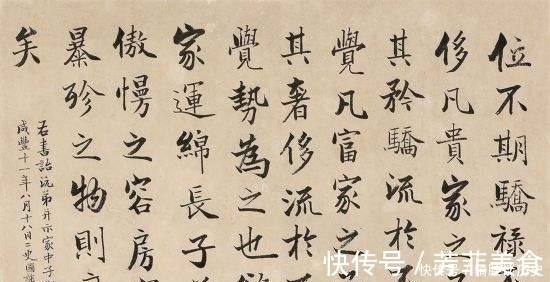 位不期驕祿
侈凡貴家之
其矜驕流於
覺凡富家之
其奢侈流於
覺勢為之也欲
家運綿長子弟
傲慢之容房
暴殄之物則
矣
右書詒沅弟并示家中子
咸豐十一年八月十八日二更國藩
快传号/芳菲美食